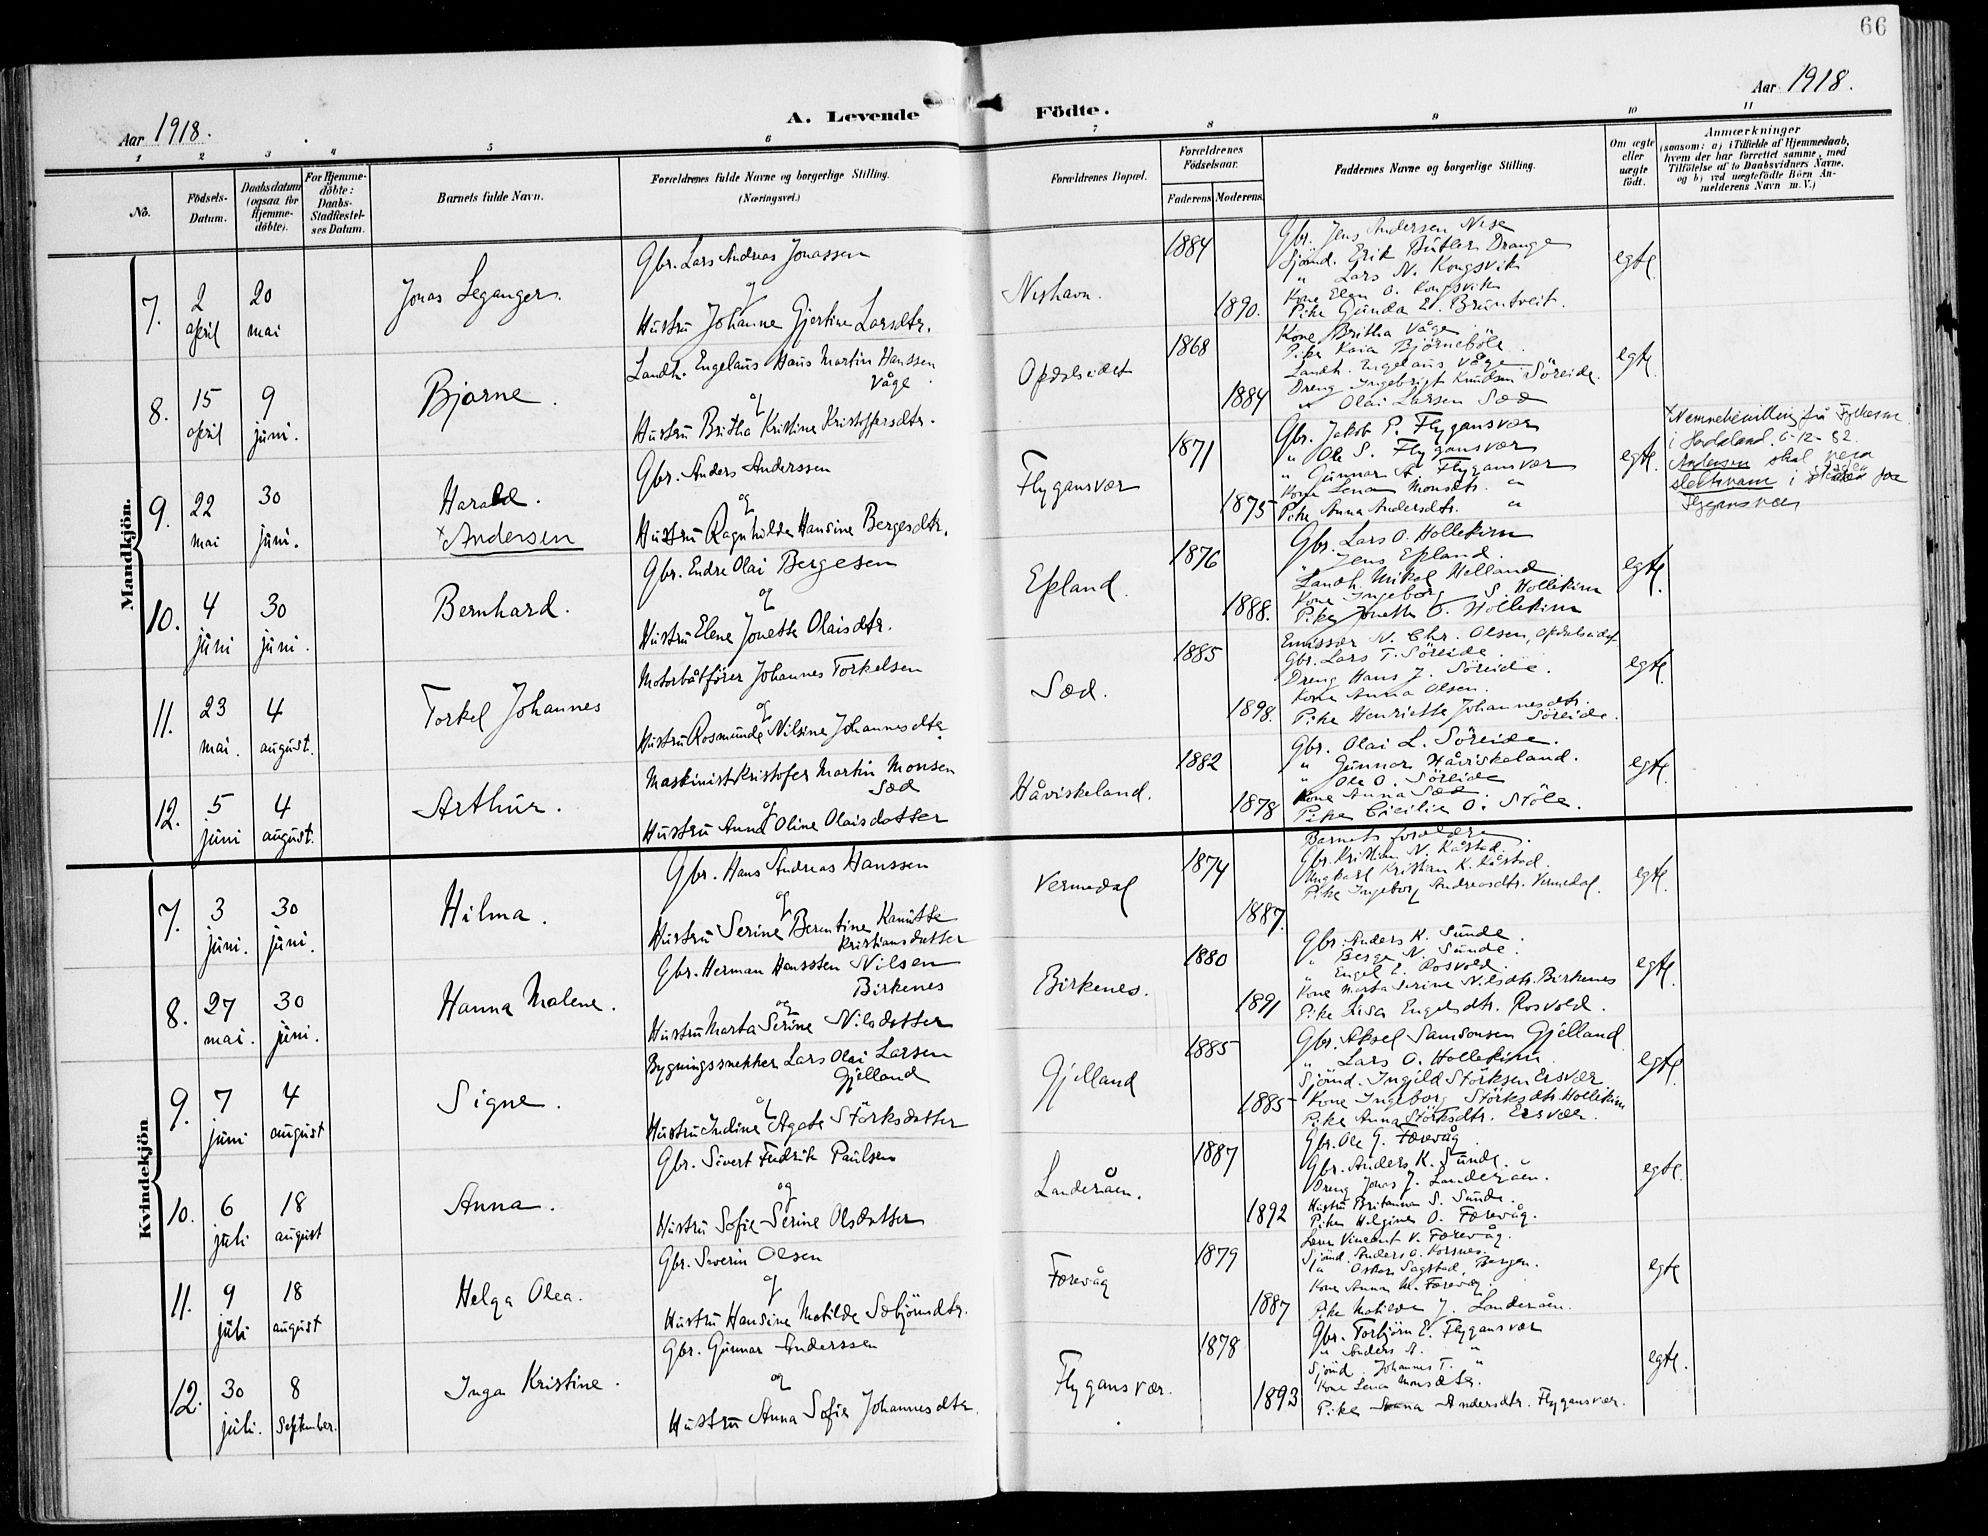 66
Aar 1918.
A. Levende
Födte.
Aar 1918.
1 2 3 4 5 6 7 8 9 10 11
No.
Födsels-
Datum.
Daabsdatum
(ogsaa for
Hjemme-
döbte).
For Hjemme-
döbte:
Daabs-
Stadfæstel-
ses Datum.
Barnets fulde Navn.
Forældrenes fulde Navne og borgerlige Stilling.
(Næringsvei.)
Forældrenes Bopæl.
Forældrenes
Födselsaar.
Faderens Moderens
Faddernes Navne og borgerlige Stilling.
Om ægte
eller
uægte
födt.
Anmærkninger
(saasom: a) i Tilfælde af Hjemmedaab,
hvem der har forrettet samme, med
Tilföielse af to Daabsvidners Navne,
og b) ved uægtefödte Börn An-
melderens Navn m. V.)
Mandkjön.
7.
2
april
20
mai
Jonas Leganger.
Gbr. Lars Andreas Jonassen
og
Hustru Johanne Gjertine Larsdtr.
Neshavn.
1884
1890.
Gbr. Jens Andersen Nese
Sjömd. Erik Butler Drange
" Lars N. Kongsvik
Kone Elen O. Kongsvik
Pike Gunda E. Bruntveit.
egte.
8.
15
april
9
juni.
Bjarne.
Landh. Engelaus Hans Martin Hanssen
Våge.
og
Hustru Britha Kristine Kristoffersdtr.
Opdalseidet
1868
1884
Kone Britha Våge
Pike Kaia Björneböle.
Landh. Engelaus Våge
Dreng Ingebrigt Knudsen Söreide.
" Olai Larsen Sæd
egte.
9.
22
mai
30
juni.
Harald.
× Andersen
Gbr. Anders Anderssen
og
Hustru Ragnhilda Hansine Bergesdtr.
Flygansvær
1871
1875
Gbr. Jakob P. Flygansvær
" Ole S. Flygansvær
" Gunnar A. Flygansvær
Kone Lena Monsdtr. "
Pike Anna Andersdtr. "
egte.
× Namnebevilling frå Fylkesm.
i Hordaland. 6-12-82.
Andersen skal vera
slektsnamn i staden for
Flygansvær
10.
4
juni
30
juni.
Bernhard.
Gbr. Endre Olai Bergesen
og
Hustru Elene Jonette Olaisdtr.
Epland.
1876
1888.
Gbr. Lars O. Hollekim
" Jens Epland.
Landh. Mikal Helland
Kone Ingeborg S. Hollekim
Pike Jonetta O. Hollekim
egte.
11.
23
mai.
4
august.
Torkel Johannes
Motorbåtförer Johannes Torkelsen
og
Hustru Rosmunde Nilsine Johannesdtr.
Sæd.
1885
1898.
Emissær N. Chr. Olsen, Opdalseidet
Gbr. Lars T. Söreide.
Dreng Hans J. Söreide.
Kone Anna Olsen.
Pike Henriette Johannesdtr.
Söreide.
egte.
12.
5
juni
4
august.
Arthur.
Maskinist Kristofer Martin Monsen
Sæd
og
Hustru Anna Oline Olaisdatter
Håviskeland.
1882
1878
Gbr. Olai L. Söreide.
" Gunnar Håviskeland.
" Ole O. Söreide
Kone Anna Sæd.
Pike Cicilie O. Stöle.
egte.
Kvindekjön
7.
3
juni.
30
juni.
Hilma.
Gbr. Hans Andreas Hanssen
og
Hustru Serine Berentine Kanutte
Kristiansdatter
Vermedal
1874
1887.
Barnets forældre.
Gbr. Kristian N. Kåstad.
Ungkarl Kristian K. Kåstad.
Pike Ingeborg Andreasdtr. Vermedal.
egte.
8.
27
mai.
30
juni.
Hanna Malene.
Gbr. Herman Hanssen Nilsen
Birkenes
og
Hustru Marta Serine Nilsdatter
Birkenes.
1880
1891
Gbr. Anders K. Sunde.
" Berge N. Sunde.
" Engel E. Rosvold.
Kone Marta Serine Nilsdtr. Birkenes
Pike Lisa Engelsdtr. Rosvold.
egte.
9.
7
juni
4
august
Signe.
Bygningssnekker Lars Olai Larsen
Gjelland
og
Hustru Indine Agate Störksdatter
Gjelland
1885
1885
Gbr. Aksel Samsonsen Gjelland
" Lars O. Hollekim
Sjömd. Ingild Störksen Ersvær
Kone Ingeborg Störksdtr. Hollekim
Pike Anna Störksdtr. Ersvær.
egte.
10.
6
juli
18
august
Anna.
Gbr. Sivert Fredrik Paulsen
og
Hustru Sofie Serine Olsdatter
Landeråen.
1887
1892
Gbr. Ole G. Færevåg
Gbr. Anders K. Sunde.
Dreng Jonas J. Landeråen.
Hustru Britanna S. Sunde.
Pike Helgine O. Færevåg.
egte.
11.
9
juli
18
august
Helga Olea.
Gbr. Severin Olsen
og
Hustru Hansine Matilde Sæbjörndtr.
Færevåg
1879
1887
Vincent V. Færevåg.
Sjömd. Anders O. Korsnes.
" Oskar Sagstad, Bergen.
Kone Anna M. Færevåg.
Pike Matilde J. Landeråen.
egte
12.
30
juli.
8
september.
Inga Kristine.
Gbr. Gunnar Anderssen
og
Hustru Anna Sofie Johannesdtr.
Flygansvær.
1878
1893
Gbr. Torbjörn E. Flygansvær
" Anders A. "
Sjömd Johannes T. "
Kone Lena Monsdtr.
Pike Anna Andersdtr. Flygansvær.
egte.